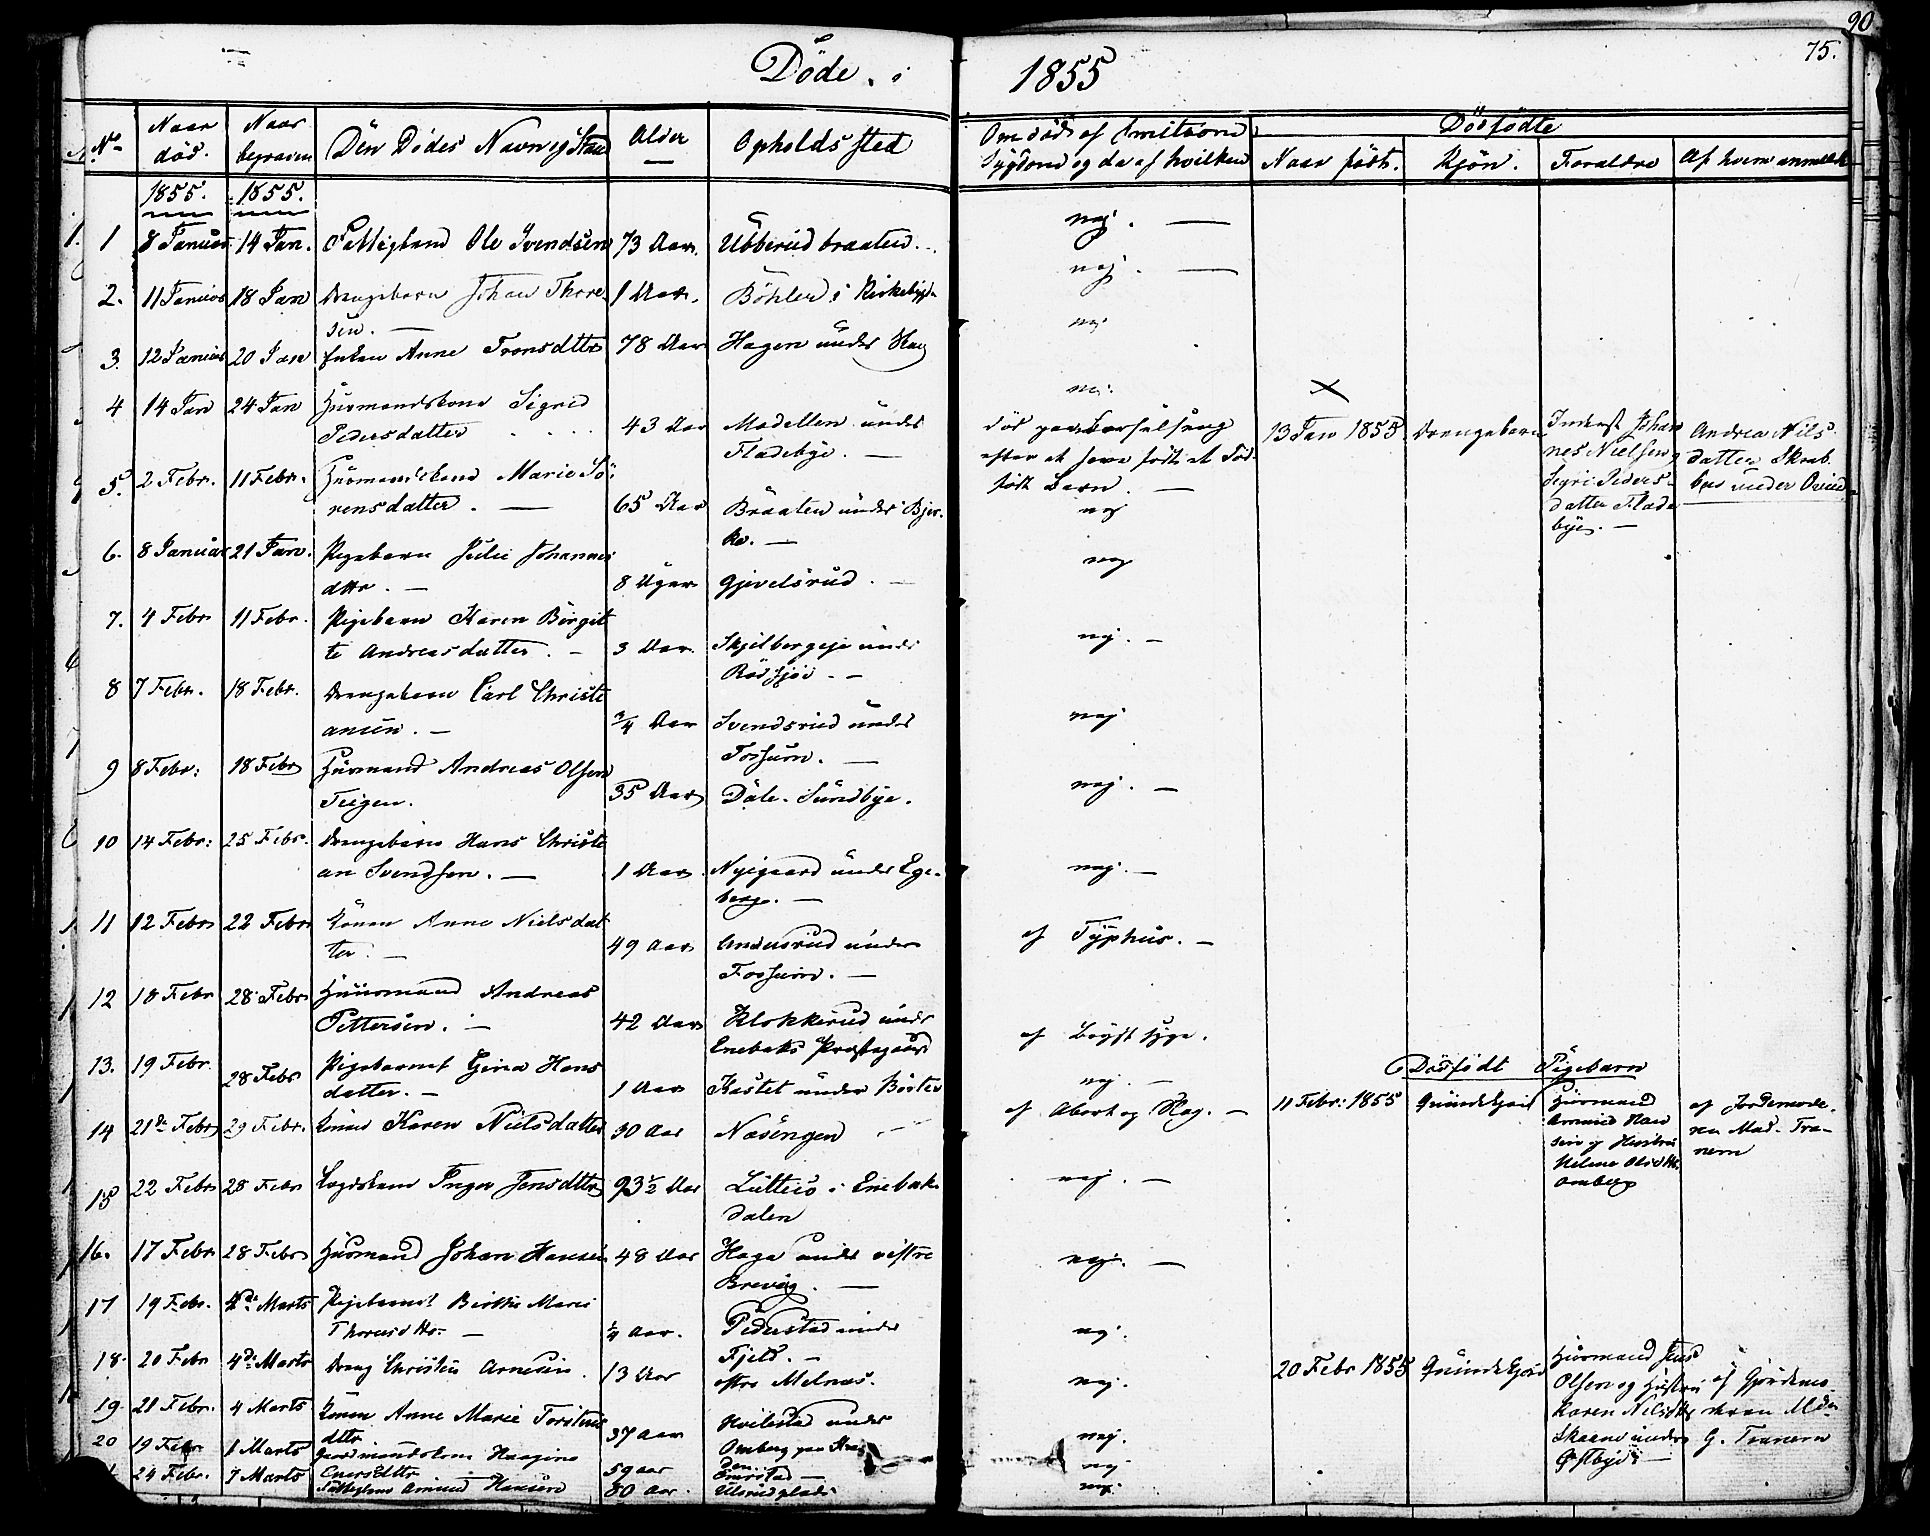 90
75.
Döde. i 1855
No
Naar död.
Naar begraven
Den Dödes Navn og Stan
Alder
Opholds sted
Om död af Smitsom Sygdom og da af hvilken
Dösfödte
Naar födt. Kjön. Foraldre Af hvem anmeldt
1855. 1855.
1 8 Januar 14 Jan. Pattiglem Ole Svendsen 73 Aar. Ubberud braaten. nej. —
2. 11 Januar 18 Jan Drengebarn Johan Thore- 1 Aar. Böhler i Kirkebyd. nej. —
sen. —
3. 12 Januar 20 Jan Enken Anne Tronsdttr 78 Aar Hagen under Hag nej
4 14 Jan 24 Jan Husmandskone Sigrid nei.
Pedersdatter 43 Aar Modellen under
Fladebye. —
död paa Barselseng
efter at have födt et död-
födt Barn. —
13 Jan 1855. Drengebarn
Inderst Johan
nes Nielsen og
Sigri Peders-
datter Flade
bye. —
Andrea Nils
datter Skrab
under
5. 2 Febr. 11 Febr. Husmandskone Marie Sö-
rensdatter. — 65 Aar Braaten under Bjer-
ke. — nej
6. 8 Januar 21 Jan. Pigebarn Julie Johannes
dttr. — 8 Uger Gjevelsrud. — nej
7. 4 Febr 11 Febr. Pigebarn Karen Birgit
te Andreasdatter. — 3 Aar. Skjelbergeje under
Rödsjöe. — nej. —
8 7 Febr. 18 Febr. Drengebarn Carl Christi
ansen. — 3/4 Aar Svendsrud under
Fossum. — nej
9 8 Febr: 18 Febr Husmand Andreas Olsen
Teigen. 35 Aar Dale. Sundbye. nej. —
10 14 Febr: 25 Febr. Drengebarn Hans Christi
an Svendsen. — 1 Aar Nyegaard under Ege-
berg. — nej. —
11 12 Febr 22 Febr Konen Anne Nielsdat
ter. — 49 Aar under
Fossum. — af Typhus. —
12 10 Febr 28 Febr Huusmand Andreas
Pettersen. — 42 Aar Klokkerud under
Enebaks Præstegaard af Brystsyge.
13. 19 Febr. 28 Febr Pigebarnet Gina Hans
datter. — 1 Aar Kastet under Börter nej. —
Dödfödt Pigebarn
14 21de Febr 29 Febr. Konen Karen Nielsdatter 30 Aar Næsengen af Abort og Slag. —
11 Febr: 1855
Husmand
Amund Han
sen og Hustru
Helene Olsdttr.
Omberg
af Jordemode-
ren Mad. Tra-
nem
15 22 Febr 28 Febr Inger Jensdttr 93 1/2 Aar i Enebak
dalen nej. —
16. 17 Febr 28 Febr Husmand Johan Hansen 48 Aar Haga under vestre
Brevig. — nej. —
17 19 Febr. 4de Marts Pigebarnet Birthe Marie
Thoresdttr. — 1/4 Aar. Pederstad under
Fjeld. — nej.
18. 20 Febr 4de Marts Dreng Christen Arnesen. 13 Aar östre Melnæs. nej.
20 Febr 1855
Husmand Jens
Olsen og Hustru
Karen Nilsdttr
Skarne under
Östbye. —
af Gjordemo
deren Mdm
G. Tranem
19. 21 Febr. 4 Marts Konen Anne Marie Torstens
dttr 37 Aar Hvilestad under
Omberg paa nej.
20 19 Febr 1 Marts Gaardmandskone Haagine
59 aar nej
24 Febr. 7 Marts Amund Hansen 80 Aar. Ulsrudplads nej.